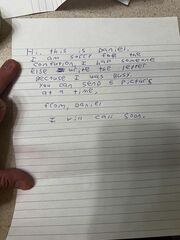 Hi, this is Daniel.
I am sorry for the
confution, I had someone
else write the letter
because I was busy.
You can send 6 pictures
at a time.
from, Daniel
I will call soon.